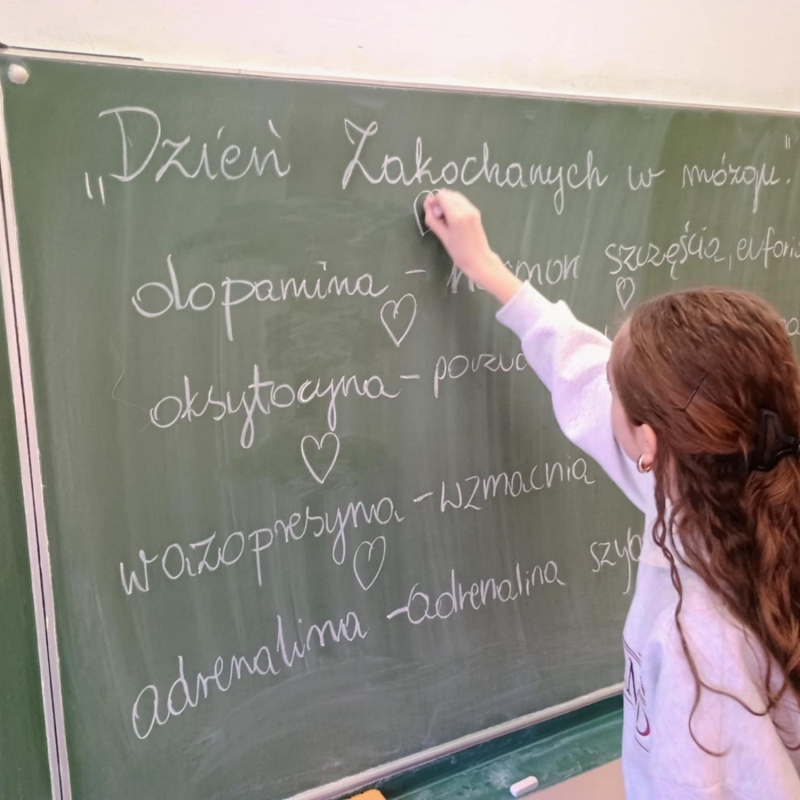 „Dzień Zakochanych w mózgu."
dopamina - hormon szczęścia, eufori
oksytocyna -
wazopresyna - wzmacnia
adrenalina - adrenalina szyb